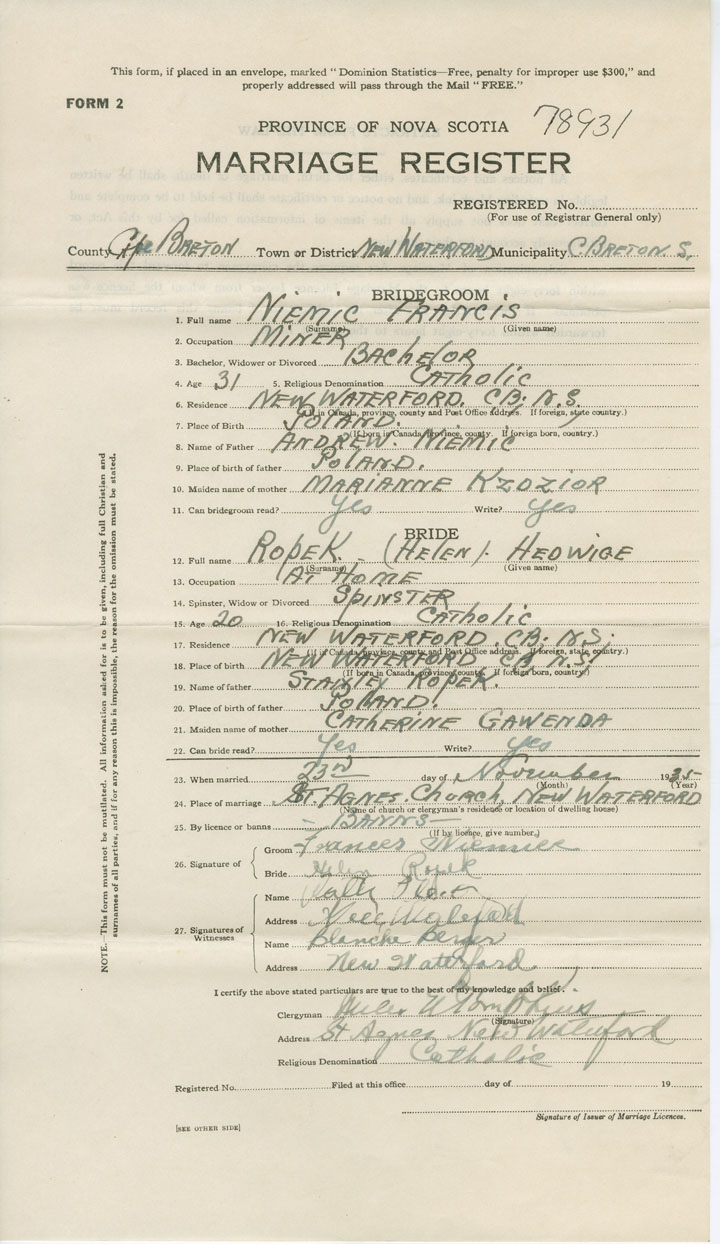 This form, if placed in an envelope, marked "Dominion Statistics—Free, penalty for improper use $300," and
properly addressed will pass through the Mail "FREE."
FORM 2
PROVINCE OF NOVA SCOTIA 78931
MARRIAGE REGISTER
REGISTERED No.
(For use of Registrar General only)
County Cape BRETON Town or District NEW WATERFORD Municipality C. BRETON. S.
BRIDEGROOM
1. Full name NIEMIC FRANCIS
(Surname) (Given name)
2. Occupation MINER
3. Bachelor, Widower or Divorced BACHELOR
4. Age 31 5. Religious Denomination CATHOLIC
6. Residence NEW WATERFORD. C.B. N.S.
(If in Canada, province, county and Post Office address. If foreign, state country.)
7. Place of Birth POLAND.
(If born in Canada, province, county. If foreign born, country.)
8. Name of Father ANDREW. NIEMIC
9. Place of birth of father POLAND.
10. Maiden name of mother MARIANNE KZDZIOR
11. Can bridegroom read? Yes Write? Yes
BRIDE
12. Full name ROPEK. (HELEN). HEDWIGE
(Surname) (Given name)
13. Occupation AT HOME
14. Spinster, Widow or Divorced SPINSTER
15. Age 20 16. Religious Denomination CATHOLIC
17. Residence NEW WATERFORD. C.B. N.S.
(If in Canada, province, county and Post Office address. If foreign, state country.)
18. Place of birth NEW WATERFORD CB N.S.
(If born in Canada, province, county. If foreign born, country.)
19. Name of father STANLEY ROPEK.
20. Place of birth of father POLAND.
21. Maiden name of mother CATHERINE GAWENDA
22. Can bride read? Yes Write? yes
23. When married 23rd day of November 1935
(Month) (Year)
24. Place of marriage ST AGNES. CHURCH, NEW WATERFORD
(Name of church or clergyman's residence or location of dwelling house)
25. By licence or banns — BANNS —
(If by licence, give number.)
26. Signature of
Groom Frances Niemiec
Bride Helen Ropek
27. Signatures of Witnesses
Name
Address New Waterford
Name Blanche
Address New Waterford
I certify the above stated particulars are true to the best of my knowledge and belief.
Clergyman Tompkins
(Signature)
Address St Agnes New Waterford
Religious Denomination Catholic
Registered No. Filed at this office day of 19
Signature of Issuer of Marriage Licences.
[SEE OTHER SIDE]
NOTE.—This form must not be mutilated. All information asked for is to be given, including full Christian and
surnames of all parties, and if for any reason this is impossible, the reason for the omission must be stated.